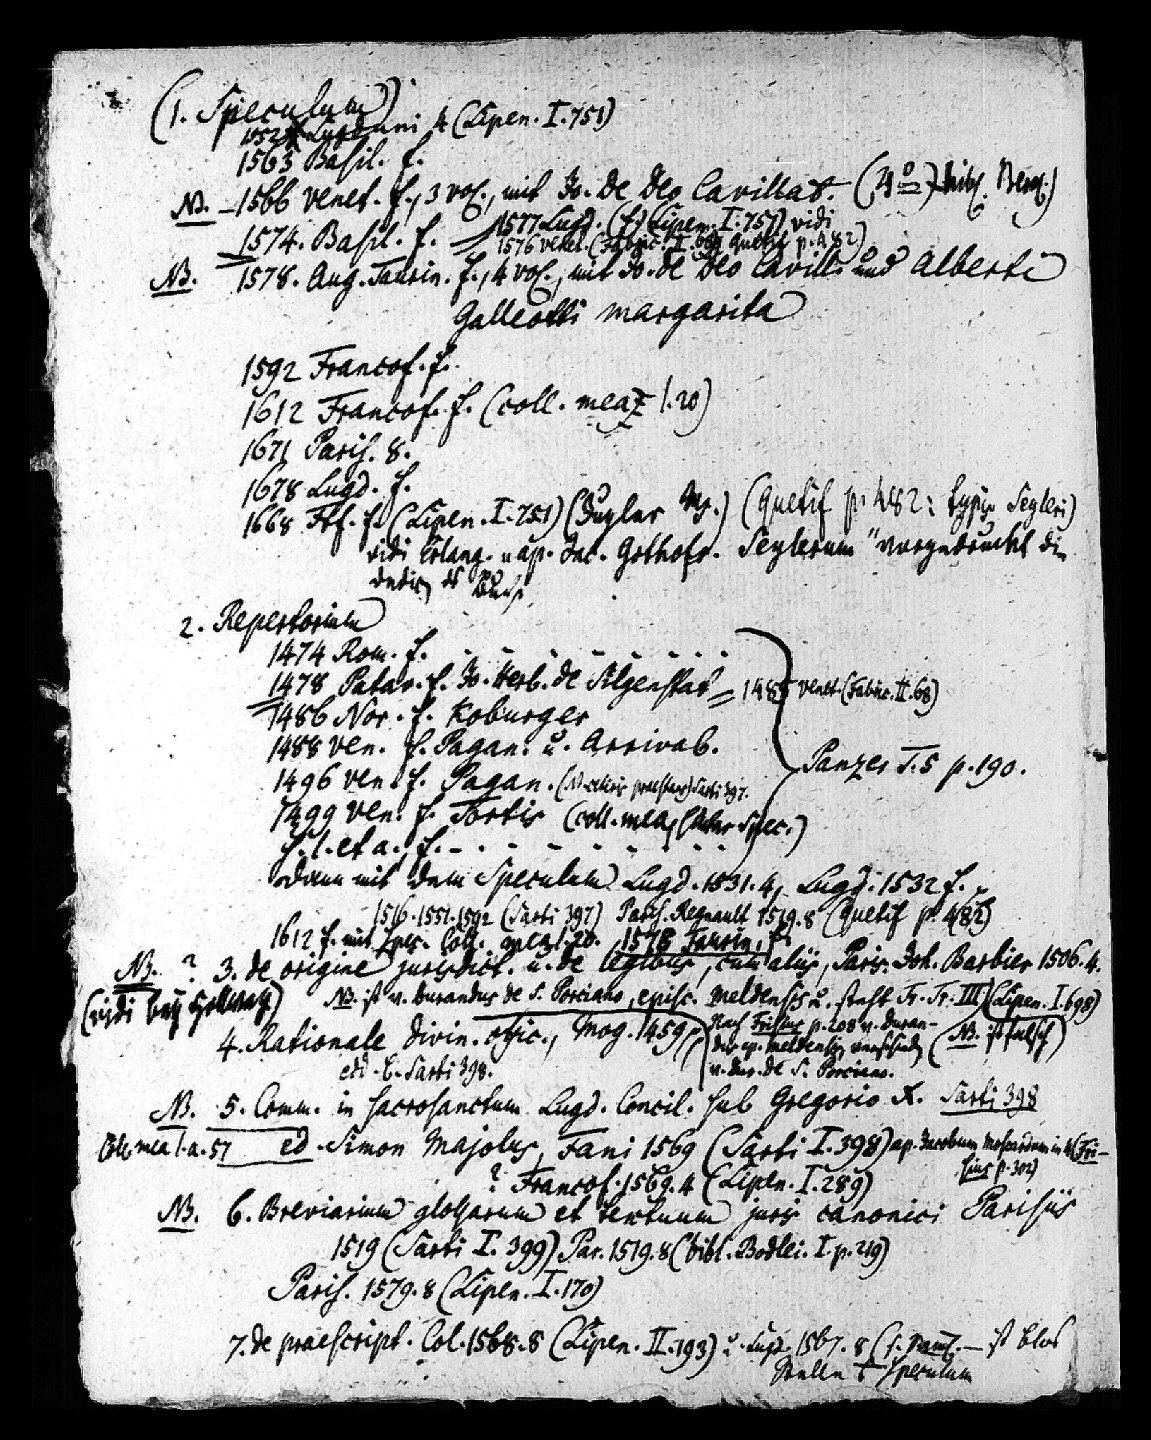 (1. Speculum)
1532 f. Lugduni 4 (Lipen. I. 751)
1563 Basil. f.
NB. 1566 Venet. f., 3 vol., mit Jo. de Deo Cavillat. (4o) Bibl.
1577 Lugd. (f.) (Lipen. I. 751) vidi
1574. Basil. f. 1576 Venet. (Fabric. II. 68) Quetif p. 482)
NB. 1578. Aug. Taurin. f., 4 vol., mit Jo. de Deo Cavill. und Alberti
Galleotti margarita
1592 Francof. f.
1612 Francof. f. (coll. mea I. 20)
1671 Paris. 8.
1678 Lugd. f.
1668 Frf. f. (Lipen. I. 751) (Hugler M.) (Quetif p. 482: typis Seyleri)
vidi Erlang. "ap. Jac. Gothofr. Seylerum" vorgedruckt die
2. Repertorium
1474 Rom. f. - - - - - - - -
1478 Patav. f. Jo. Herb. de Silgenstat = 1485 Venet. (Fabric. II. 68)
1486 Nor. f. Koburger
1488 Ven. f. Pagan. u. Arrivab.
Panzer T. 5 p. 190.
1496 Ven. f. Pagan. (Sarti 397.
1499 Ven. f. Tortis (coll. mea, Spec.)
s. l. et a. f. - - - - - - - -
dann mit dem Speculum Lugd. 1531. 4, Lugd. 1532 f.
1516. 1551. 1592 (Sarti 397) Paris. Regnault 1519. 8 (Quetif p. 482)
1612 f. mit Spec. Coll. mea I. 20. 1578 Taurin. f.
NB. ? 3. de origine jurisdict. u. de legibus, cum aliis, Paris. Joh. Barbier 1506. 4.
(vidi bey NB. ist v. Durandus de S. Porciano, episc. Meldensis u. steht Tr. Tr. III) (Lipen. I. 698)
4. Rationale divin. offic., Mog. 1459
Nach p. 208 v. Duran-
dus ep. Meldensis verschieden (NB. ist falsch)
v. Dur. de S. Porciano.
edd. C. Sarti 398.
NB. 5. Comm. in sacrosanctum Lugd. Concil. sub Gregorio X. Sarti 398
Coll. mea I. a. 57 ed. Simon Majolus, Fani 1569 (Sarti I. 398) ap. Jacobum Moscardum in 4 (Fri-
sius p. 302)
? Francof. 1569. 4 (Lipen. I. 289)
NB. 6. Breviarium glossarum et textuum juris canonici Parisiis
1519 (Sarti I. 399) Par. 1519. 8 (bibl. Bodlei. I. p. 219)
Paris. 1579. 8 (Lipen. I. 170)
7. de praescript. Col. 1568. 8 (Lipen. II. 193) u. Lugd. 1567. 8 — ist blos
Stelle Speculum